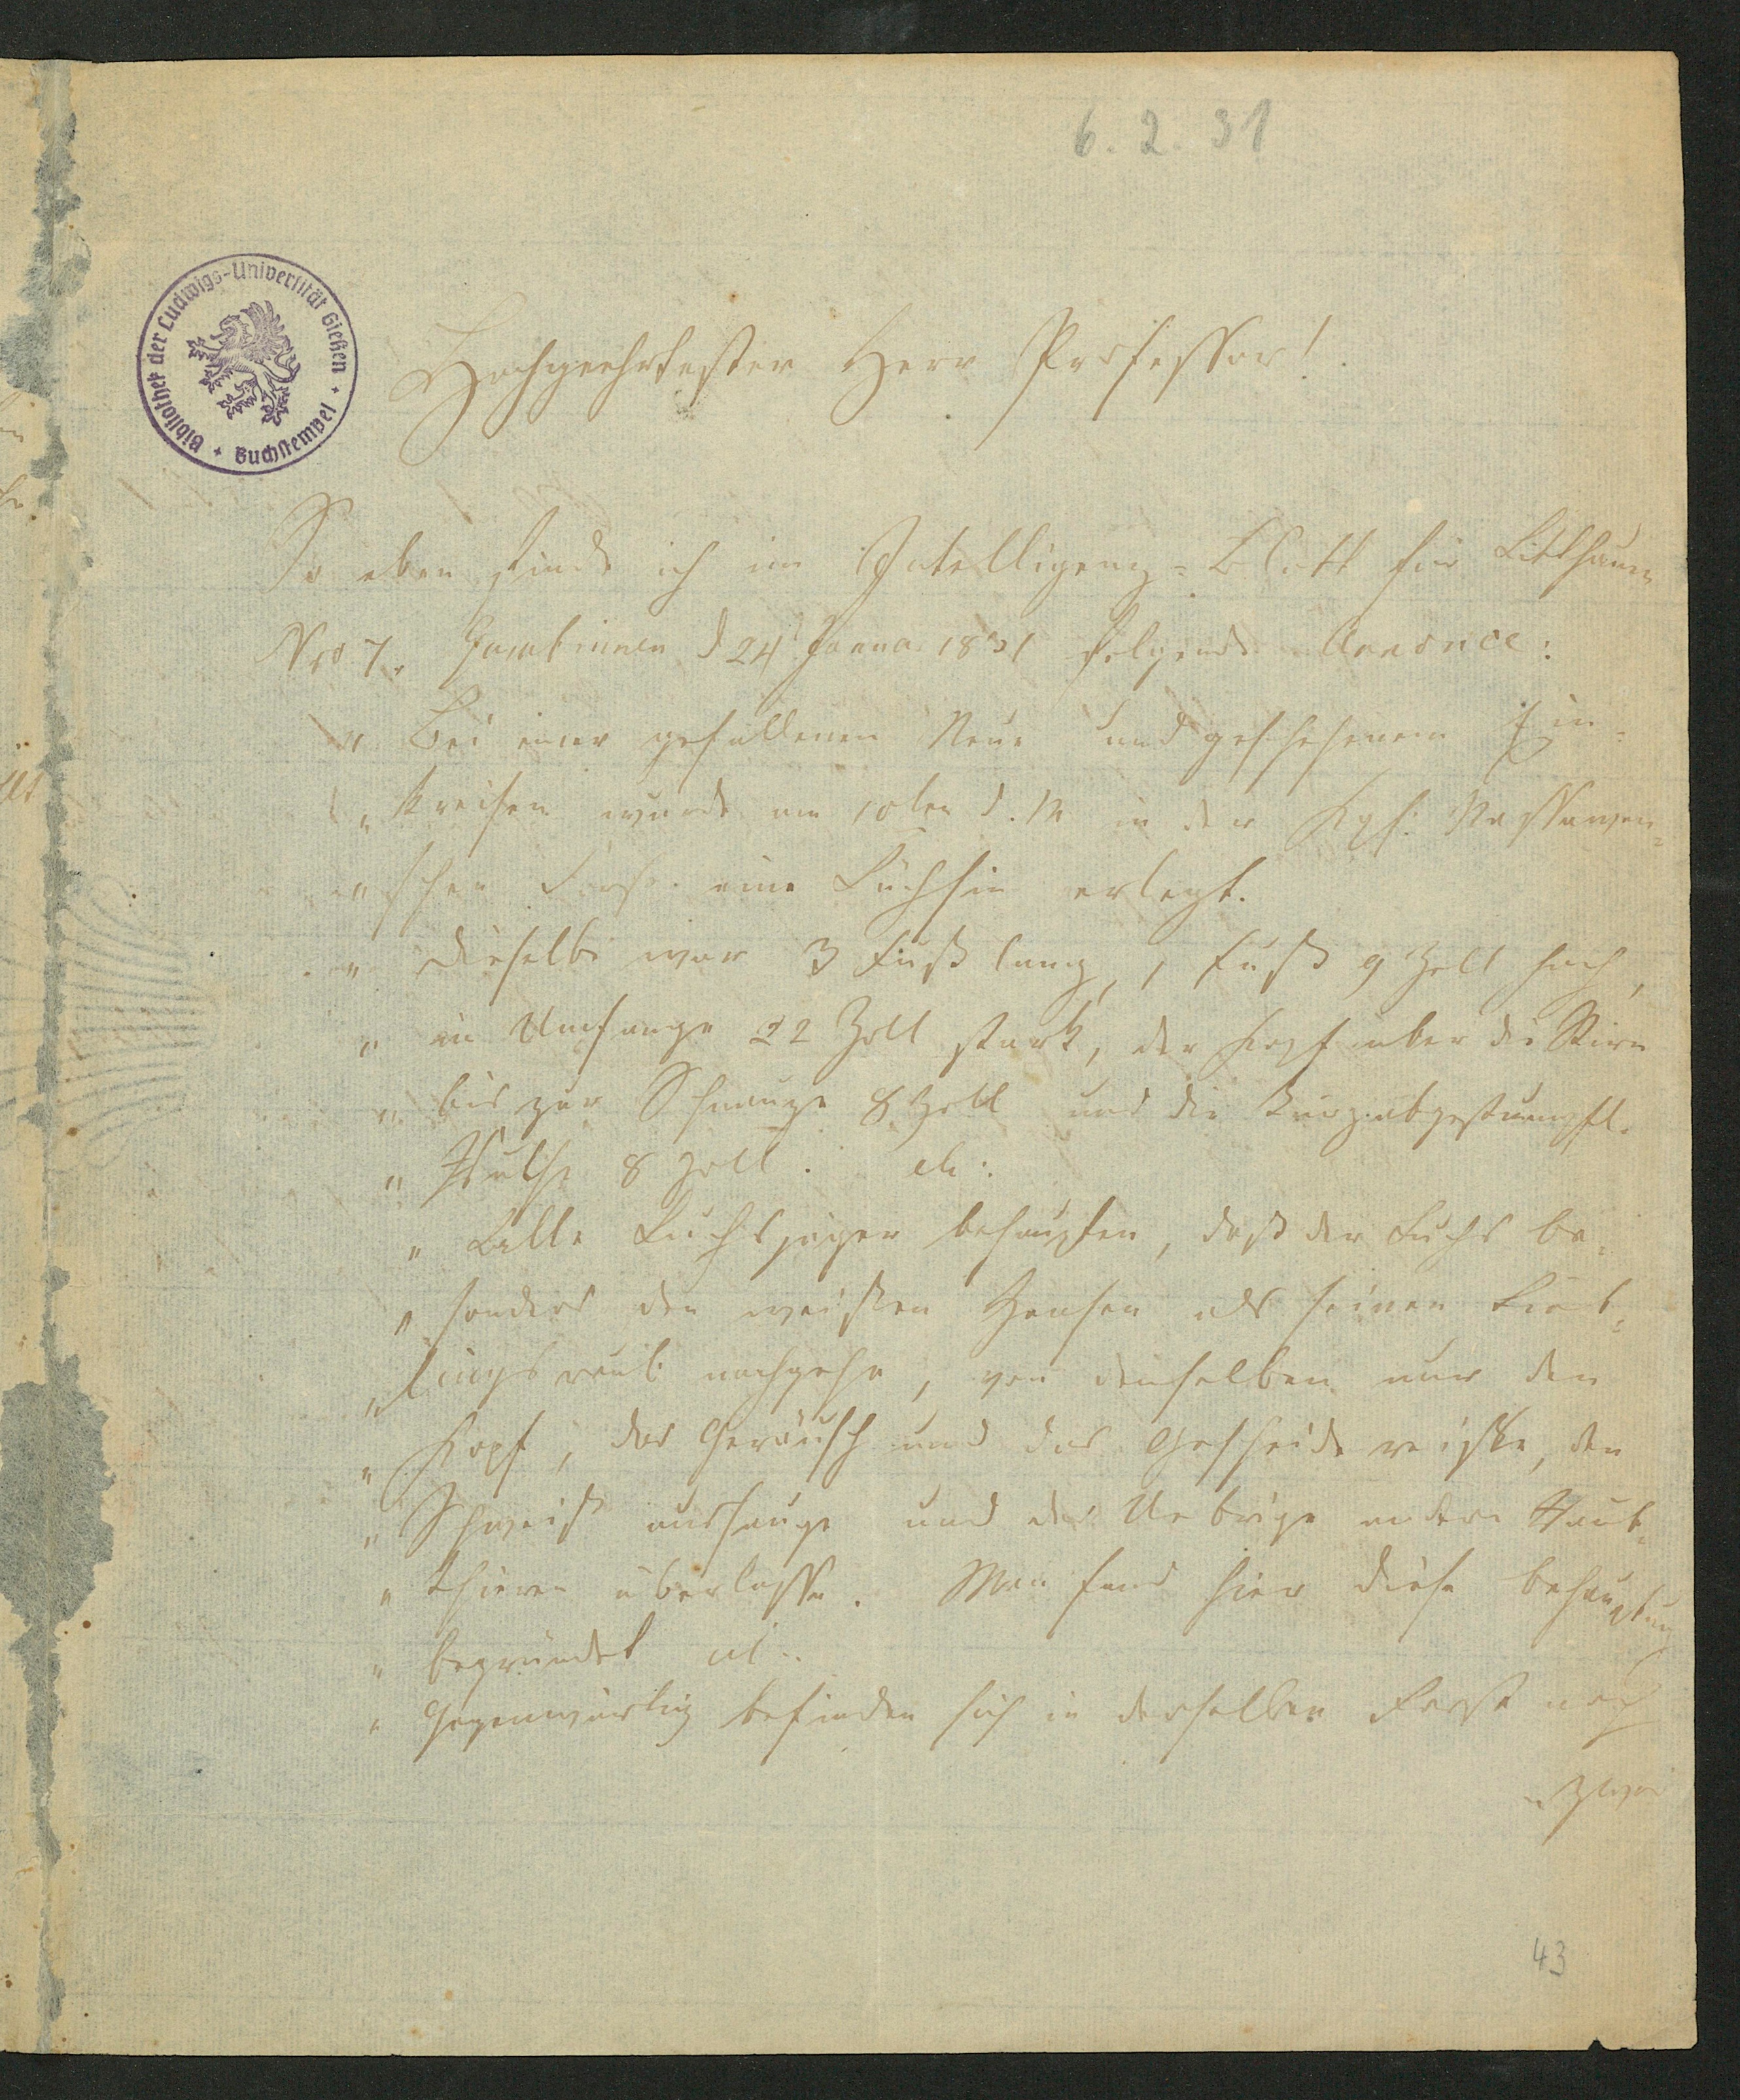 6. 2. 31
Bibliothek der Ludwigs-Universität Gießen + Buchstempel +
Hochgeehrtester Herr Professor!
So eben finde ich im Intelligenz-Blatt für Litthauen
Nro 7. Gumbinnen d 24t Januar 1831 folgende Annonce:
„ Bei einer gefallenen Neue und geschehenem Ein-
„ kreisen wurde am 10ten d. M in der Kgl: Nassawen-
„ schen Forst eine Luchsin erlegt.
„ dieselbe war 3 Fuß lang, 1 Fuß 9 Zoll hoch,
„ im Umfange 22 Zoll stark, der Kopf über die Stirn
„ bis zur Schnauze 8 Zoll und die kurz abgestumpfte
„ Ruthe 8 Zoll. etc:
„ Alle Luchsjäger behaupten, daß der Luchs be-
„ sonders den weißen Haasen als seinen Lieb-
„ lingsraub nachgehe, von demselben nur den
„ Kopf, das Geräusch und das Gescheide reiße, den
„ Schweiß aussauge und das Uebrige andern Raub-
„ thieren überlasse. Man fand hier diese Behauptung
„ begründet etc..
„ Gegenwärtig befinden sich in derselben Forst noch
„ zwei
43